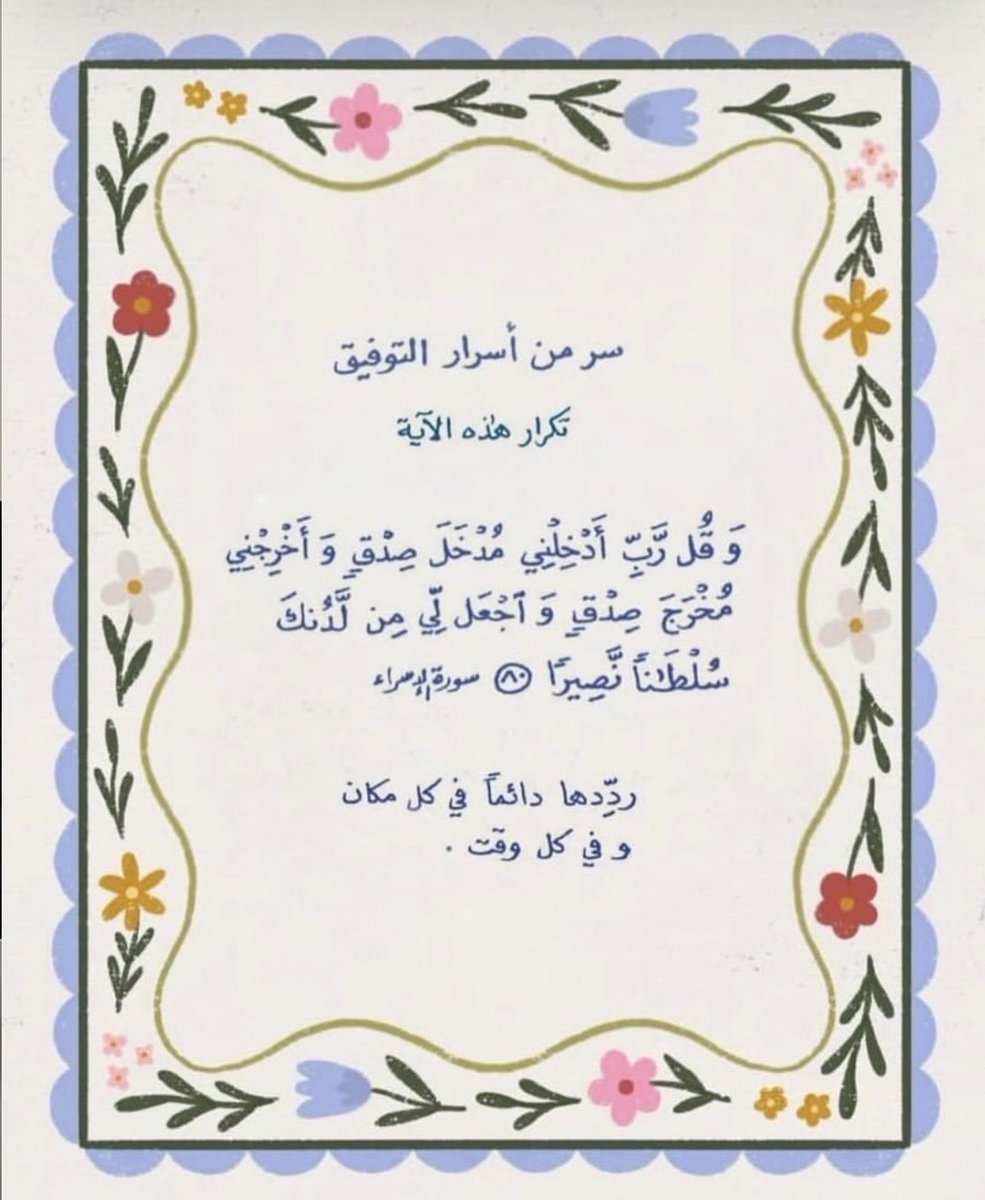 سر من أسرار التوفيق
تكرار هٰذه الآية
وَ قُل رَّبِّ أَدْخِلْنِي مُدْخَلَ صِدْقٍ وَ أَخْرِجْنِي
مُخْرَجَ صِدْقٍ وَ ٱجْعَل لِّي مِن لَّدُنكَ
سُلْطَـٰناً نَّصِيرًا ٨٠ سورة الإسراء
ردِّدها دائماً في كل مكان
و في كل وقت .